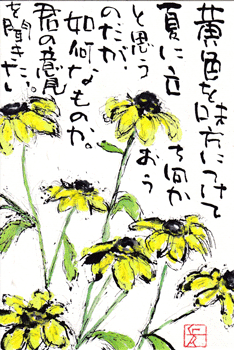 黄色を味方につけて
夏に立ち向かおう
と思う
のだが、
如何なものか。
君の意見
を聞きたい